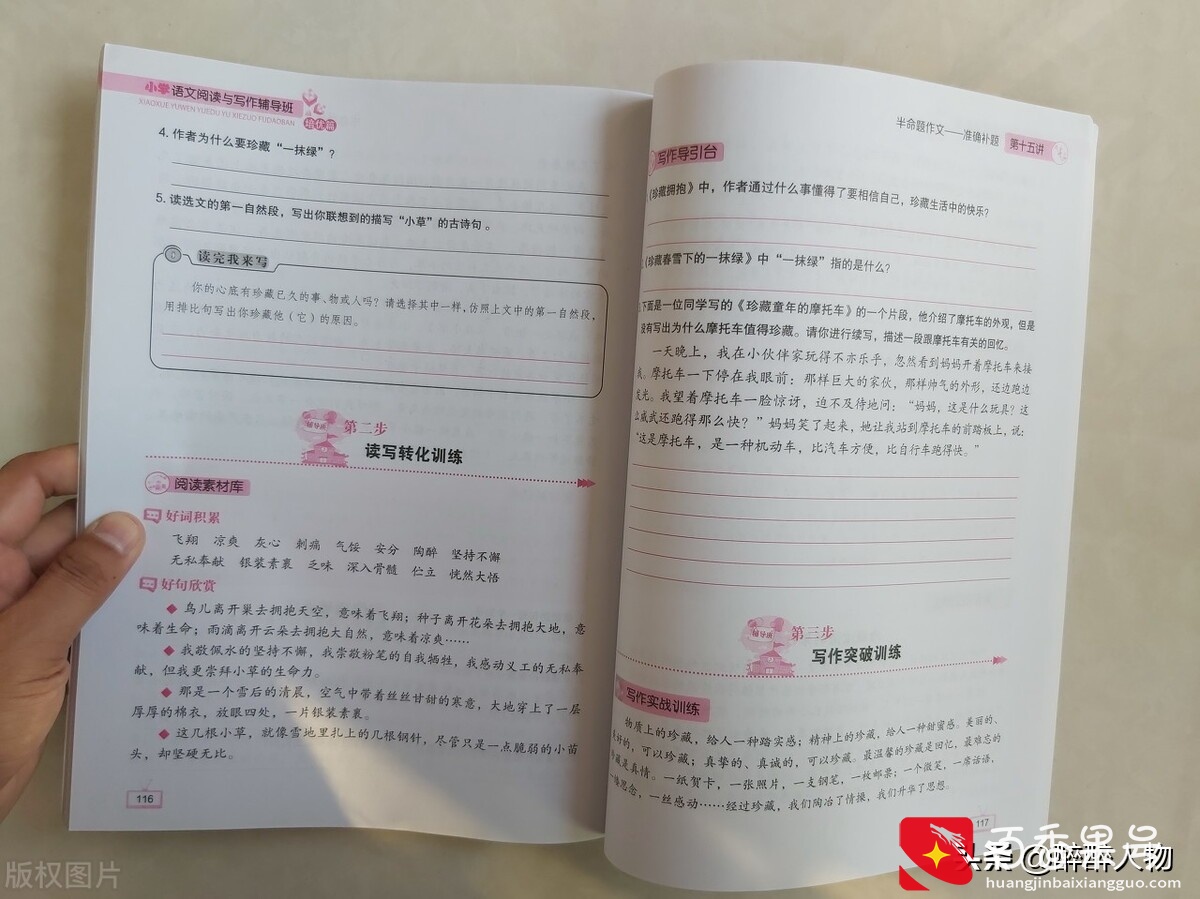 小学语文阅读与写作辅导班
XIAOXUE YUWEN YUEDU YU XIEZUO FUDAOBAN
培优篇
4. 作者为什么要珍藏“一抹绿”？
5. 读选文的第一自然段，写出你联想到的描写“小草”的古诗句。
读完我来写
你的心底有珍藏已久的事、物或人吗？请选择其中一样，仿照上文中的第一自然段，
用排比句写出你珍藏他（它）的原因。
第二步
读写转化训练
阅读素材库
好词积累
飞翔 凉爽 灰心 刺痛 气馁 安分 陶醉 坚持不懈
无私奉献 银装素裹 乏味 深入骨髓 伫立 恍然大悟
好句欣赏
◆ 鸟儿离开巢去拥抱天空，意味着飞翔；种子离开花朵去拥抱大地，意
味着生命；雨滴离开云朵去拥抱大自然，意味着凉爽……
◆ 我敬佩水的坚持不懈，我崇敬粉笔的自我牺牲，我感动义工的无私奉
献，但我更崇拜小草的生命力。
◆ 那是一个雪后的清晨，空气中带着丝丝甘甜的寒意，大地穿上了一层
厚厚的棉衣，放眼四处，一片银装素裹。
◆ 这几根小草，就像雪地里扎上的几根钢针，尽管只是一点脆弱的小苗
头，却坚硬无比。
116
半命题作文——准确补题 第十五讲
写作导引台
《珍藏拥抱》中，作者通过什么事懂得了要相信自己，珍藏生活中的快乐？
《珍藏春雪下的一抹绿》中“一抹绿”指的是什么？
下面是一位同学写的《珍藏童年的摩托车》的一个片段，他介绍了摩托车的外观，但是
没有写出为什么摩托车值得珍藏。请你进行续写，描述一段跟摩托车有关的回忆。
一天晚上，我在小伙伴家玩得不亦乐乎，忽然看到妈妈开着摩托车来接
我。摩托车一下停在我眼前：那样巨大的家伙，那样帅气的外形，还边跑边
发光。我望着摩托车一脸惊讶，迫不及待地问：“妈妈，这是什么玩具？这
么威武还跑得那么快？”妈妈笑了起来，她让我站到摩托车的前踏板上，说：
“这是摩托车，是一种机动车，比汽车方便，比自行车跑得快。”
第三步
写作突破训练
写作实战训练
物质上的珍藏，给人一种踏实感；精神上的珍藏，给人一种甜蜜感。美丽的、
美好的，可以珍藏；真挚的、真诚的，可以珍藏。最温馨的珍藏是回忆，最难忘的
珍藏是真情。一纸贺卡，一张照片，一支钢笔，一枚邮票；一个微笑，一席话语，
思念，一丝感动……经过珍藏，我们陶冶了情操，我们升华了思想。
117
版权图片
头条 @醉醉人物
百香果号
huangjinbaixiangguo.com